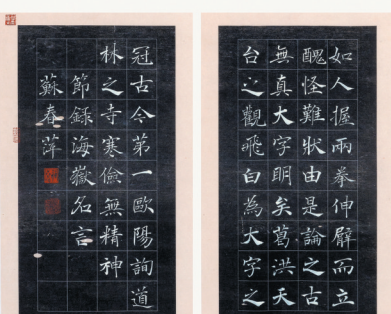 如人握兩拳伸臂而立
醜怪難狀由是論之古
無真大字明矣葛洪天
台之觀飛白為大字之
冠古今第一歐陽詢道
林之寺寒儉無精神
節錄海嶽名言
蘇春萍